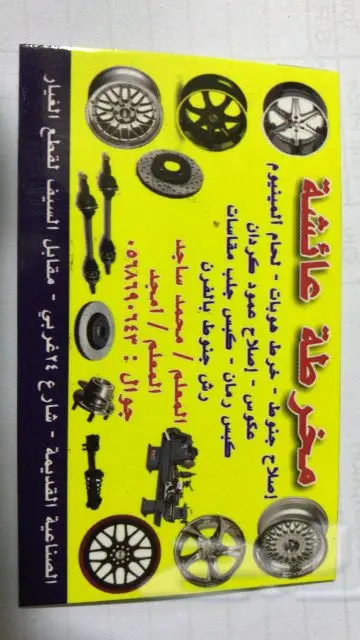 مخرطة عائشة
إصلاح جنوط - خرط هوبات - لحام المينيوم
عكوس - إصلاح عمود كردان
كبس رمان - كبس جلب مقاسات
رش جنوط بالفرن
المعلم / محمد ساجد
المعلم / امجد
جوال : ٠٥٦٨٦٩٠٦٤٣
الصناعية القديمة - شارع ٢٤ غربي - مقابل السيف لقطع الغيار